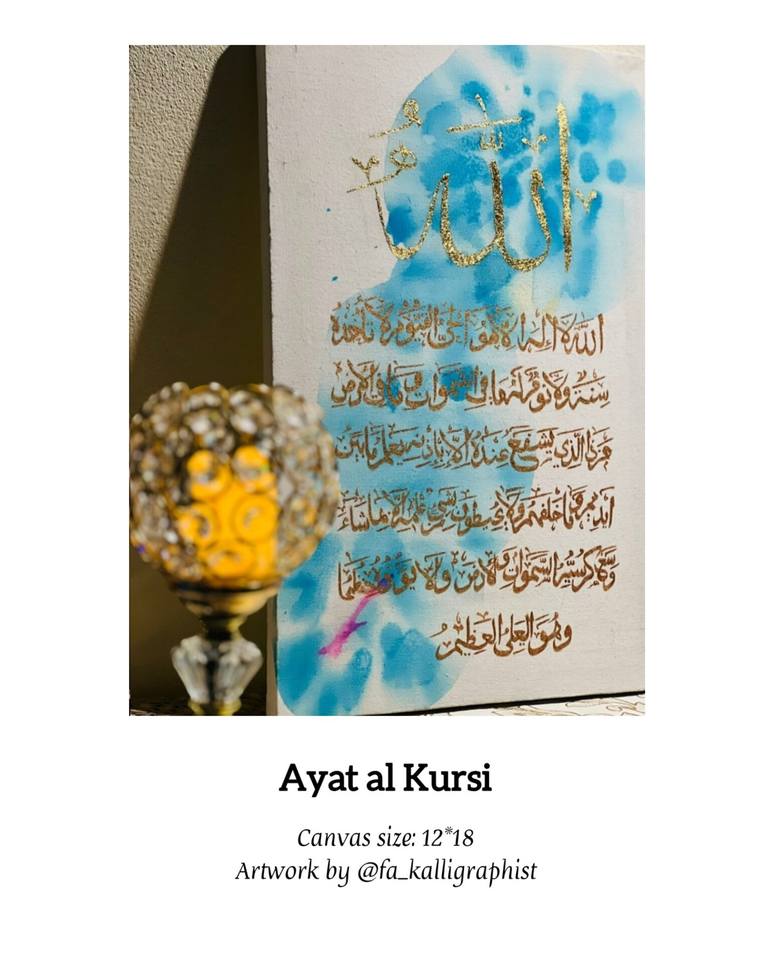 الله
الله لا اله الا هو الحي القيوم لا تأخذه
سنة ولا نوم له ما في السموات وما في الارض
من ذا الذي يشفع عنده الا باذنه يعلم ما بين
ايديهم وما خلفهم ولا يحيطون بشيء من علمه الا بما شاء
وسع كرسيه السموات والارض ولا يؤده حفظهما
وهو العلي العظيم
Ayat al Kursi
Canvas size: 12*18
Artwork by @fa_kalligraphist